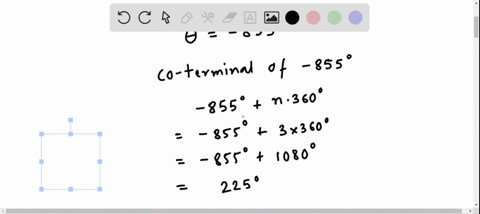 θ = -855°
co-terminal of -855°
-855° + n·360°
= -855° + 3×360°
= -855° + 1080°
= 225°